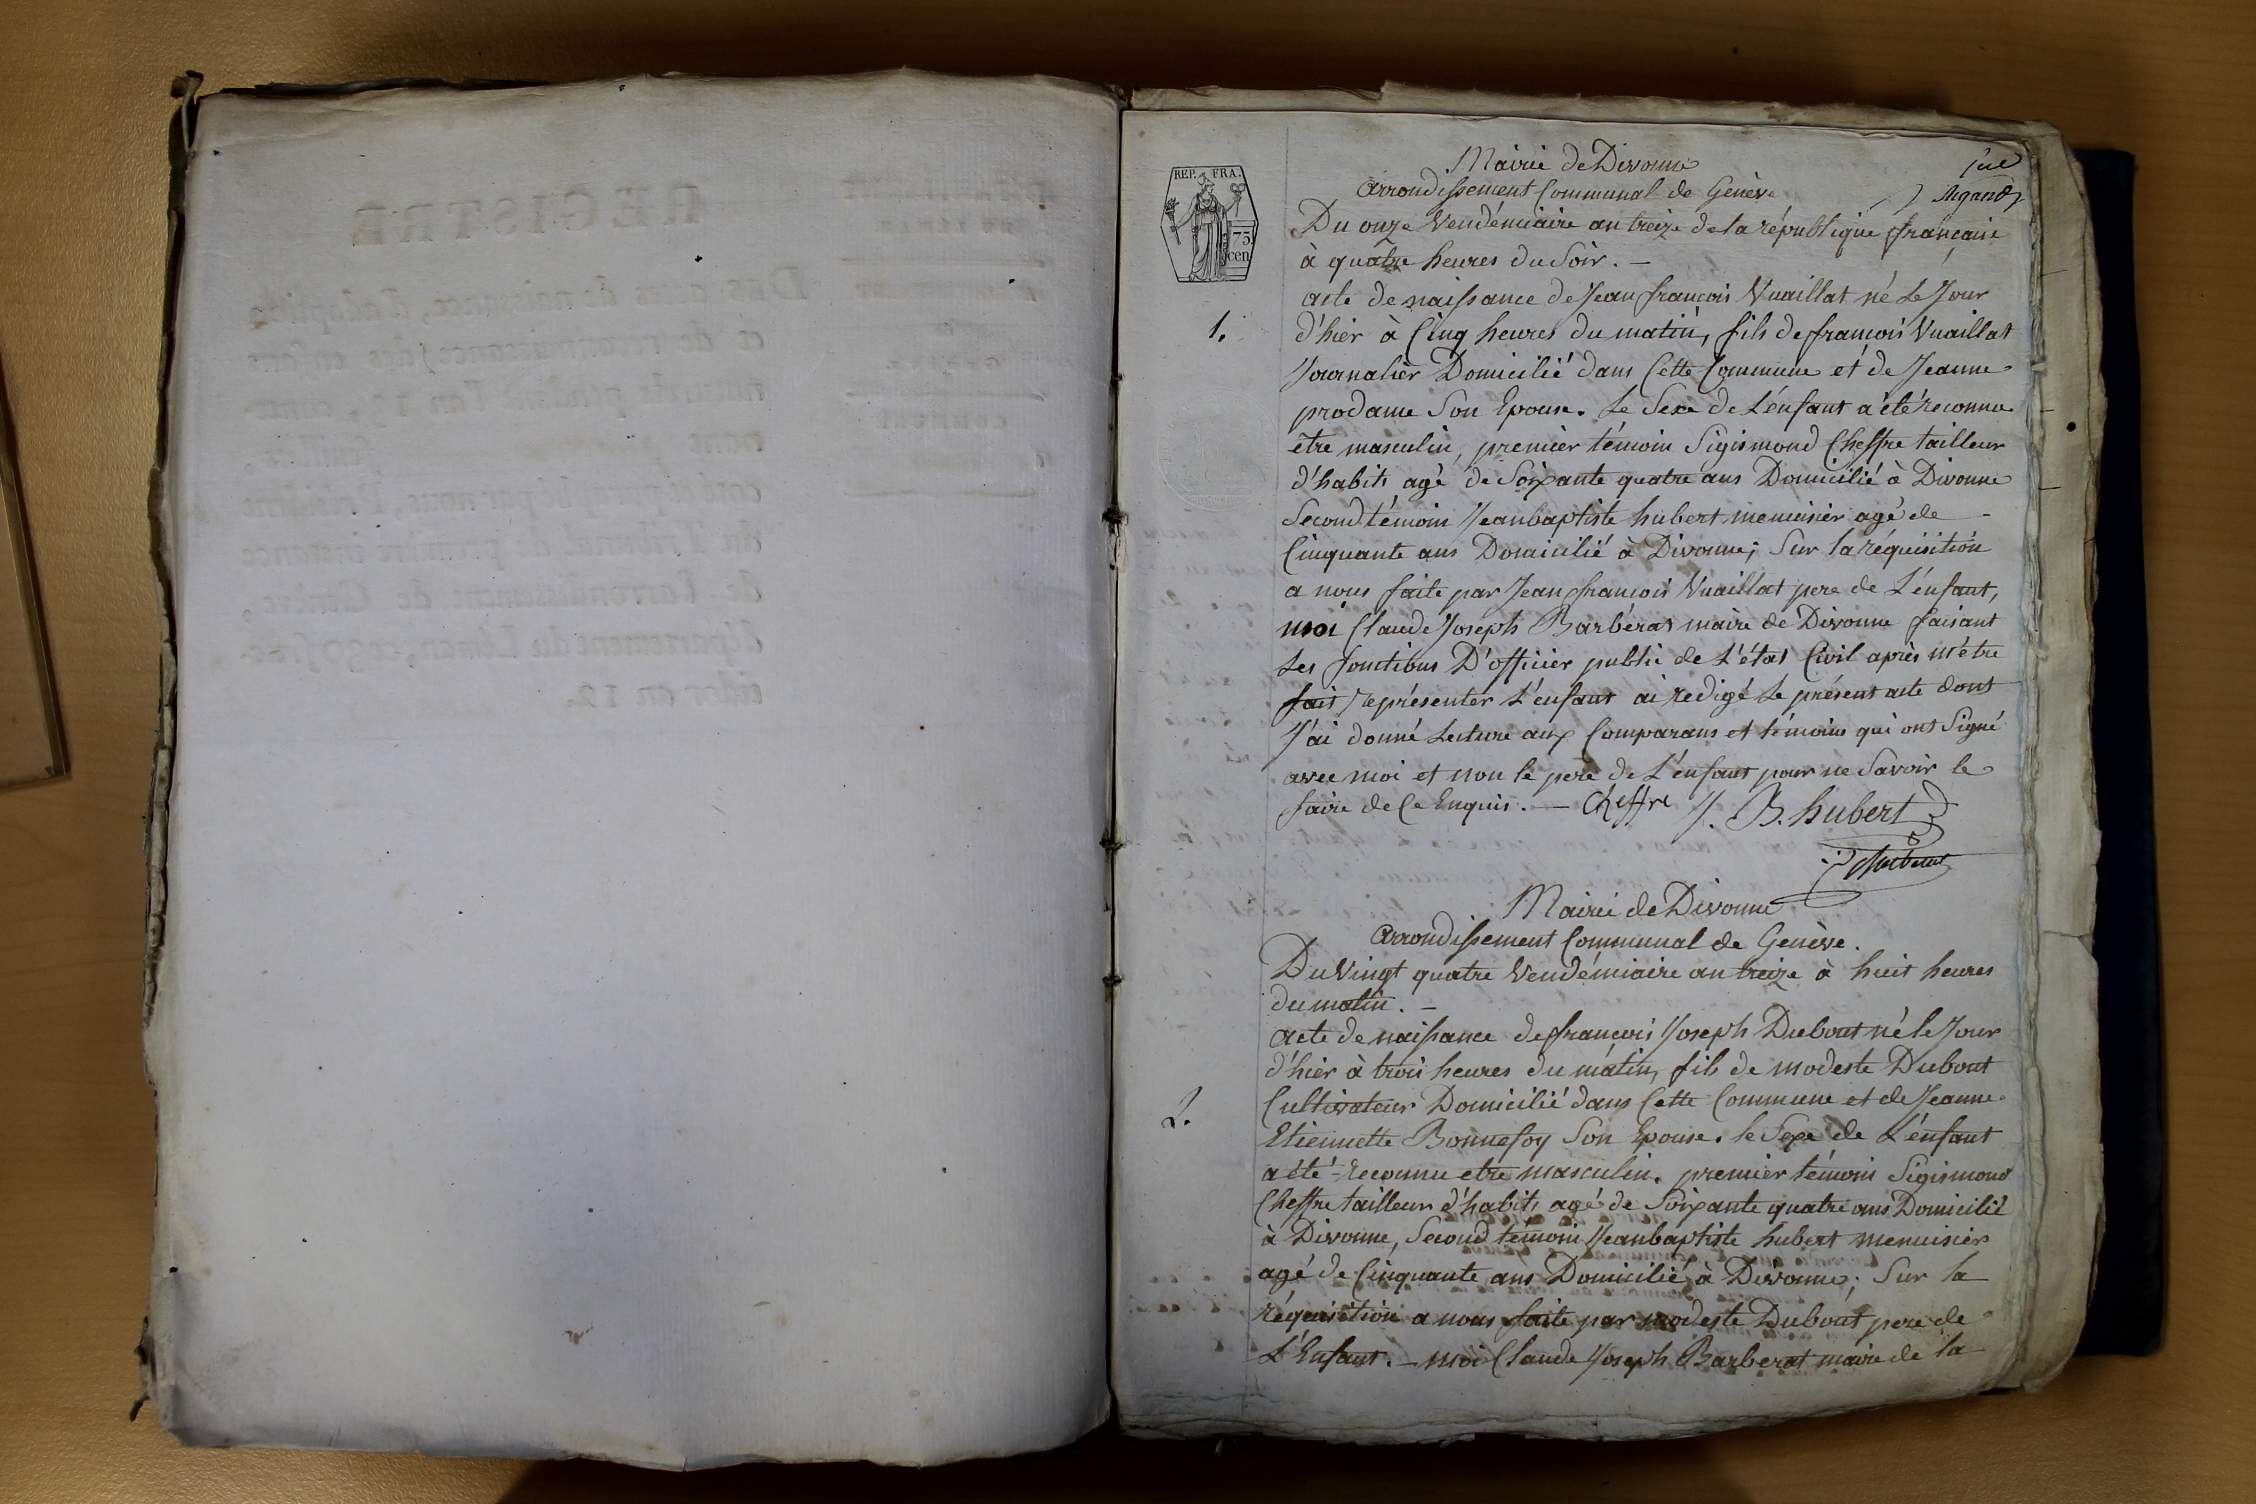 REGISTRE
DES actes de naissance, d'adoption
et de reconnaissance des enfans
l'an 13, 
par nous, Président
du Tribunal de première instance
de l'arrondissement de Genève,
département du Léman, ce 30
an 12.
GENÈVE.
COMMUNE
REP. FRA.
75
cen
Mairie de Divonne
Arrondissement Communal de Genève
Du onze Vendémiaire an treize de la république française
à quatre heures du Soir. —
acte de naissance de Jean françois Vuaillat né Le Jour
1.
d'hier à Cinq heures du matin, fils de françois Vuaillat
Journalier Domicilié dans Cette Commune et de Jeanne
prodame Son Epouse. Le Sexe de L'énfant a été reconnu
etre masculin, premier témoin Sigismond Cheffre tailleur
d'habits agé de Soixante quatre ans Domicilié à Divonne
Second témoin Jean baptiste hubert menuisier agé de
Cinquante ans Domicilié à Divonne; Sur la réquisition
a nous faite par Jean françois Vuaillat pere de L'énfant,
moi Claude Joseph Barbérat maire de Divonne faisant
Les fonctions D'officier public de L'état Civil après m'être
fait représenter L'enfant ai redigé Le présent acte dont
J'ai donné Lecture aux Comparans et témoins qui ont Signé
avec moi et non le pere de L'énfant pour ne Savoir le
faire de Ce Enquis. — Cheffre J. B. hubert
Barberat
Mairie de Divonne
Arrondissement Communal de Genève.
Du Vingt quatre Vendémiaire an treize à huit heures
du matin. —
acte de naissance de françois Joseph Dubout né le Jour
d'hier à trois heures du matin, fils de modeste Dubout
2.
Cultivateur Domicilié dans Cette Commune et de Jeanne
Etiennette Bonnefoy Son Epouse. le Sexe de L'énfant
a été reconnu etre masculin. premier témoin Sigismond
Cheffre tailleur d'habits agé de Soixante quatre ans Domicilié
à Divonne, Second témoin Jean baptiste hubert menuisier
agé de Cinquante ans Domicilié à Divonne; Sur la
réquisition a nous faite par modeste Dubout pere de
L'Enfant. — moi Claude Joseph Barberat maire de la